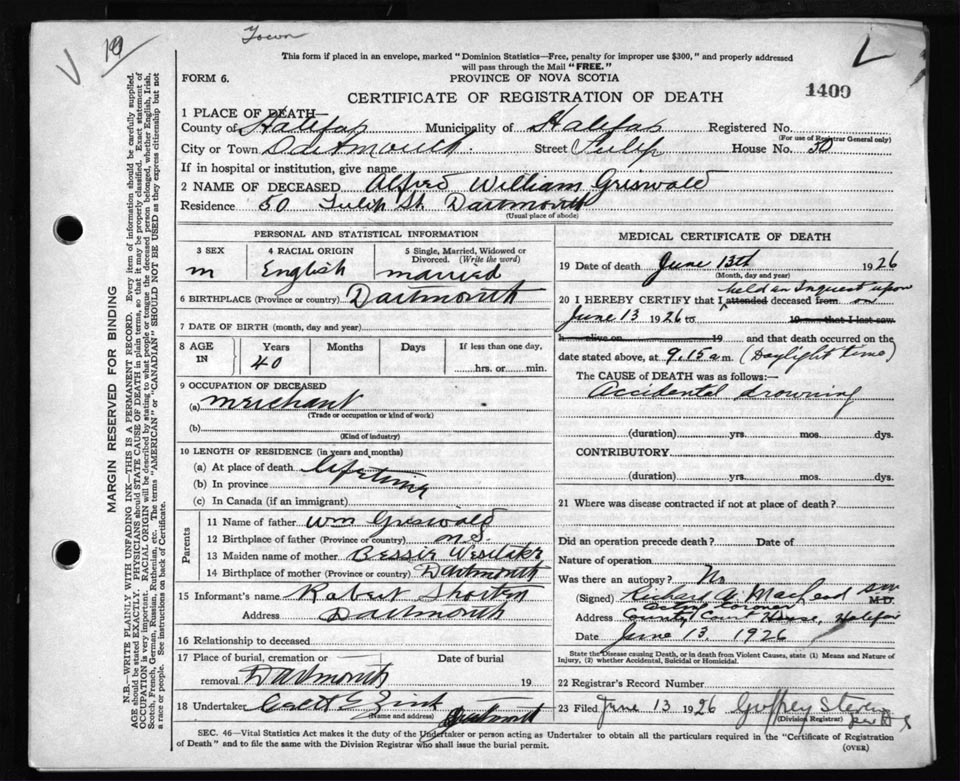 Town
19
This form if placed in an envelope, marked "Dominion Statistics—Free, penalty for improper use $300," and properly addressed
will pass through the Mail "FREE."
FORM 6.
PROVINCE OF NOVA SCOTIA
CERTIFICATE OF REGISTRATION OF DEATH
1409
1 PLACE OF DEATH—
County of Halifax Municipality of Halifax Registered No.
(For use of Registrar General only)
City or Town Dartmouth Street Tulip House No. 50
If in hospital or institution, give name
2 NAME OF DECEASED Alfred William Griswald
Residence 50 Tulip St. Dartmouth
(Usual place of abode)
PERSONAL AND STATISTICAL INFORMATION
3 SEX
m
4 RACIAL ORIGIN
English
5 Single, Married, Widowed or
Divorced. (Write the word)
married
6 BIRTHPLACE (Province or country) Dartmouth
7 DATE OF BIRTH (month, day and year)
8 AGE
IN
Years
40
Months
Days
If less than one day,
hrs. or min.
9 OCCUPATION OF DECEASED
(a) merchant
(Trade or occupation or kind of work)
(b)
(Kind of industry)
10 LENGTH OF RESIDENCE (in years and months)
(a) At place of death lifetime
(b) In province
(c) In Canada (if an immigrant)
Parents
11 Name of father Wm Griswald
12 Birthplace of father (Province or country) N.S.
13 Maiden name of mother Bessie
14 Birthplace of mother (Province or country) Dartmouth
15 Informant's name Robert
Address Dartmouth
16 Relationship to deceased
17 Place of burial, cremation or
removal Dartmouth
Date of burial
19
18 Undertaker Zink Dartmouth
(Name and address)
MEDICAL CERTIFICATE OF DEATH
19 Date of death June 13th 1926
(Month, day and year)
held an Inquest upon
20 I HEREBY CERTIFY that I attended deceased from on
June 13 1926 to 19 that I last saw
h alive on 19 and that death occurred on the
date stated above, at 9.15 a m. (Daylight time)
The CAUSE of DEATH was as follows:—
Accidental drowning
(duration) yrs. mos. dys.
CONTRIBUTORY
(duration) yrs. mos. dys.
21 Where was disease contracted if not at place of death?
Did an operation precede death? Date of
Nature of operation
Was there an autopsy? No
(Signed) Richard A. MacLeod M.D.
Address County Court House, Halifax
Date June 13, 1926
State the Disease causing Death, or in death from Violent Causes, state (1) Means and Nature of
Injury, (2) whether Accidental, Suicidal or Homicidal.
22 Registrar's Record Number
23 Filed June 13 1926 Godfrey
(Division Registrar)
SEC. 46—Vital Statistics Act makes it the duty of the Undertaker or person acting as Undertaker to obtain all the particulars required in the "Certificate of Registration
of Death" and to file the same with the Division Registrar who shall issue the burial permit.
(OVER)
MARGIN RESERVED FOR BINDING
N.B.—WRITE PLAINLY WITH UNFADING INK—THIS IS A PERMANENT RECORD. Every item of information should be carefully supplied.
AGE should be stated EXACTLY. PHYSICIANS should STATE CAUSE OF DEATH in plain terms, so that it may be properly classified. Exact statement of
OCCUPATION is very important. RACIAL ORIGIN will be described by stating to what people or tongue the deceased person belonged, whether English, Irish,
Scotch, French, German, Russian, Ruthenian, etc. The terms "AMERICAN" or "CANADIAN" SHOULD NOT BE USED as they express citizenship but not
a race or people. See instructions on back of Certificate.